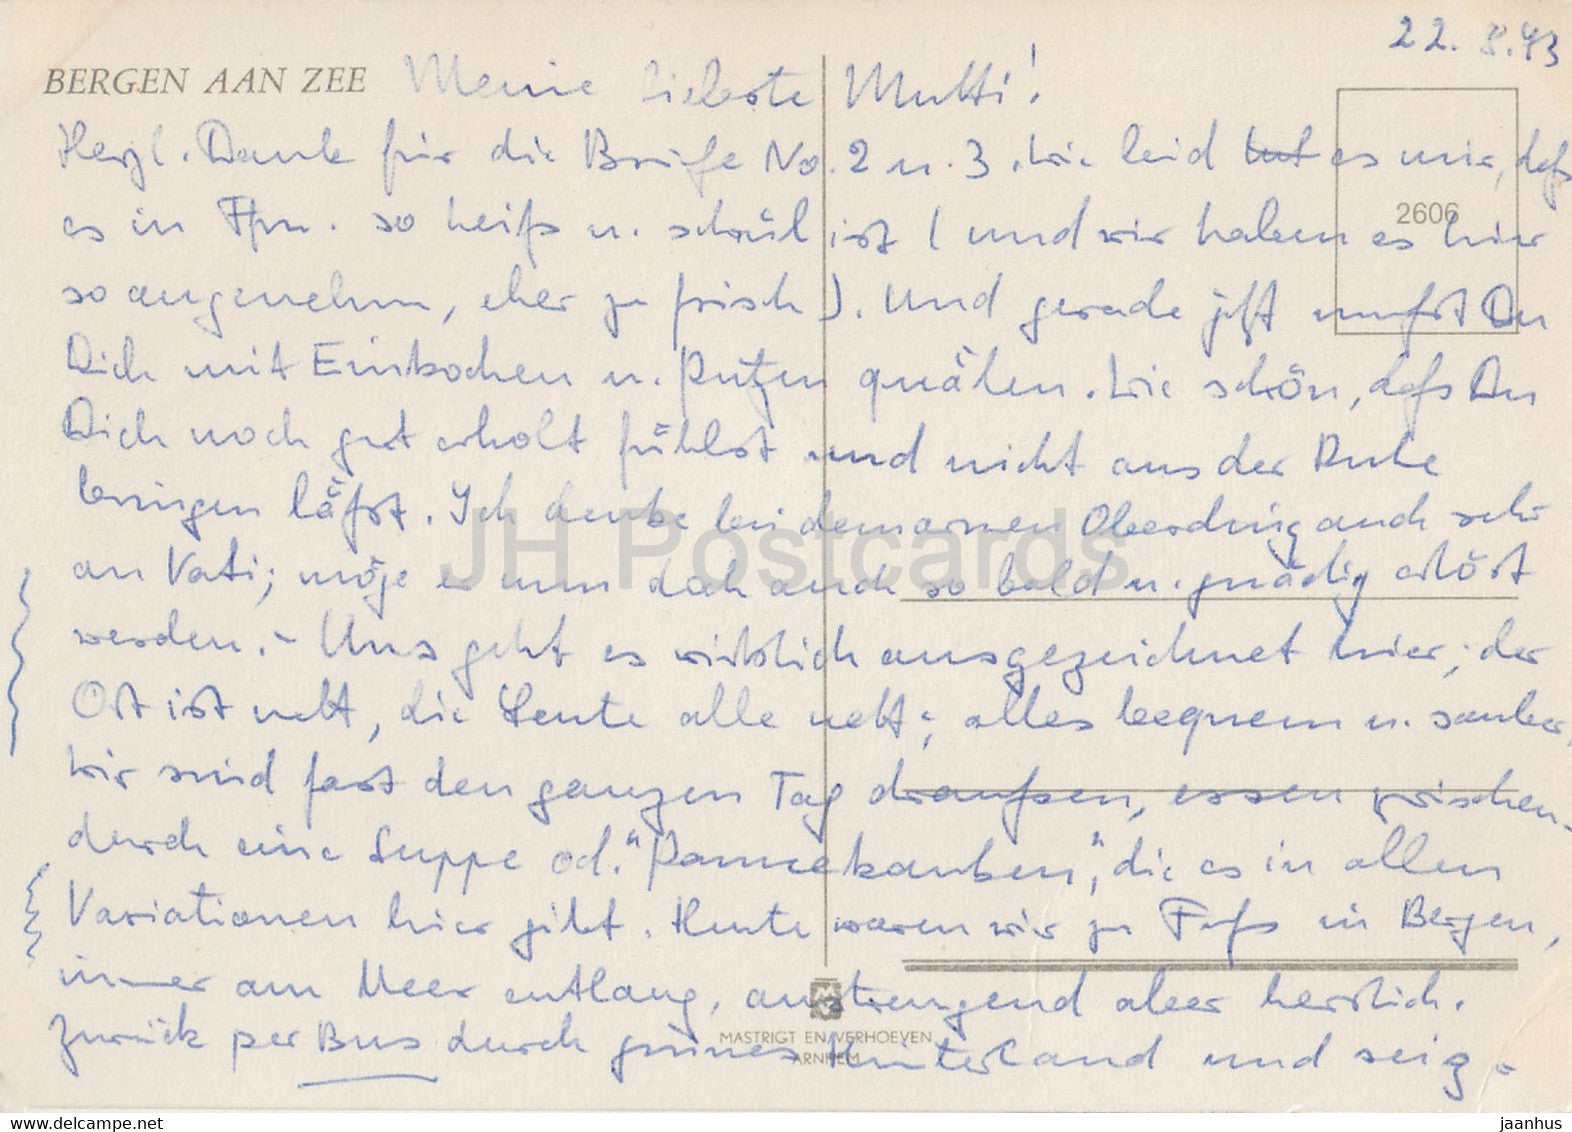 22. 8. 73
BERGEN AAN ZEE Meine liebste Mutti!
Herzl. Dank für die Briefe No. 2 u. 3. Wie leid tut es mir, daß
2606
es in Ffm. so heiß u. schwül ist (und wir haben es hier
so angenehm, eher zu frisch). Und gerade jetzt mußt Du
Dich mit Einkochen u. Putzen quälen. Wie schön, daß Du
Dich noch gut erholt fühlst und nicht aus der Ruhe
bringen läßt. Ich denke bei dem armen auch sehr
an Vati; möge er nun doch auch so bald u. gnädig erlöst
werden. – Uns geht es wirklich ausgezeichnet hier; der
Ort ist nett, die Leute alle nett; alles bequem u. sauber,
wir sind fast den ganzen Tag draußen, essen zwischen-
durch eine Suppe od. "Pannekauken", die es in allen
Variationen hier gibt. Heute waren wir zu Fuß in Bergen,
immer am Meer entlang, anstrengend aber herrlich.
Zurück per Bus durch grünes Hinterland und seig.
MASTRIGT EN VERHOEVEN
ARNHEM
JH Postcards
www.delcampe.net
jaanhus